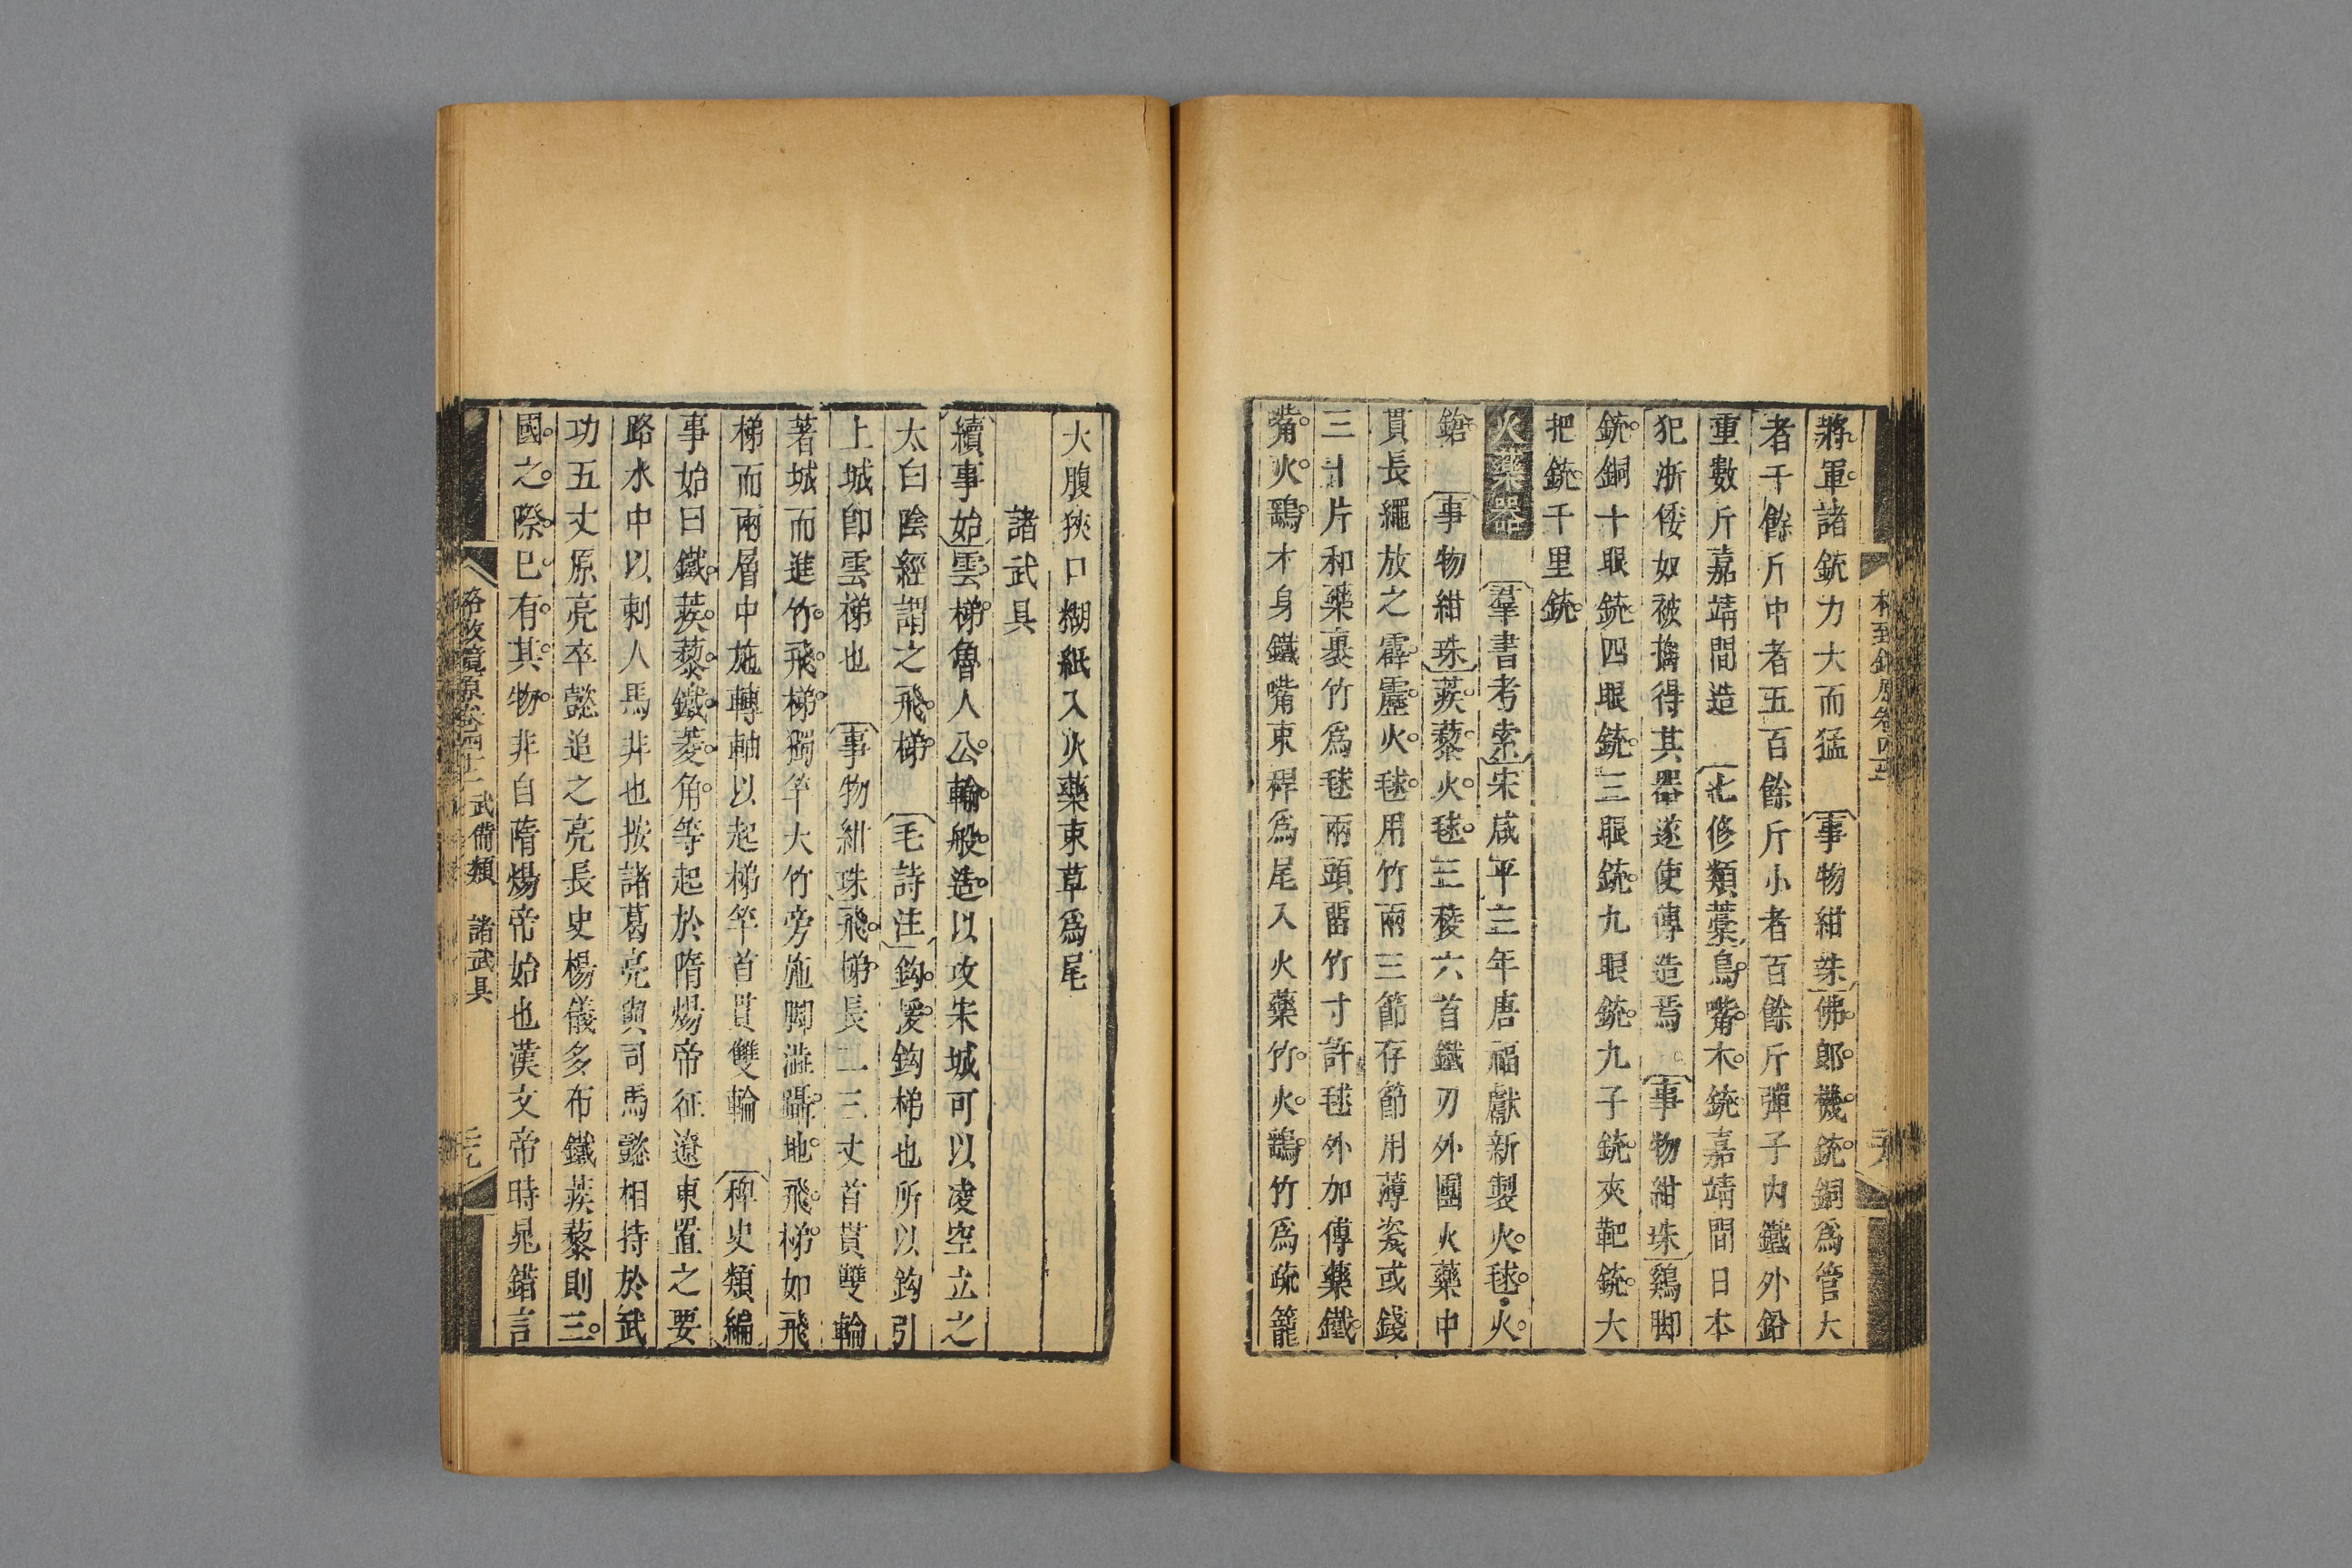 將軍諸銃力大而猛 事物紺珠佛郎機銃銅爲管大
者千餘斤中者五百餘斤小者百餘斤彈子内鐵外鉛
重數斤嘉靖間造 七修類藁鳥嘴木銃嘉靖間日本
犯浙倭奴被擒得其器遂使傳造焉 事物紺珠鷄脚
銃銅十眼銃四眼銃三眼銃九眼銃九子銃夾靶銃大
把銃千里銃
火藥器 羣書考索宋咸平三年唐福獻新製火毬火
鎗 事物紺珠蒺藜火毬三稜六首鐵刃外團火藥中
貫長繩放之霹靂火毬用竹兩三節存節用薄瓷或錢
三十片和藥裹竹爲毬兩頭留竹寸許毬外加傅藥鐵
觜火鷂木身鐵嘴束稈爲尾入火藥竹火鷂竹爲疏籠
大腹狹口糊紙入火藥束草爲尾
諸武具
續事始雲梯魯人公輸般造以攻宋城可以凌空立之
太白陰經謂之飛梯 毛詩注鈎援鈎梯也所以鈎引
上城卽雲梯也 事物紺珠飛梯長二三丈首貫雙輪
著城而進竹飛梯獨竿大竹旁施脚澁躡地飛梯如飛
梯而兩層中施轉軸以起梯竿首貫雙輪 稗史類編
事始曰鐵蒺藜鐵菱角等起於隋煬帝征遼東置之要
路水中以刺人馬非也按諸葛亮與司馬懿相持於武
功五丈原亮卒懿追之亮長史楊儀多布鐵蒺藜則三
國之際已有其物非自隋煬帝始也漢文帝時晁錯言
格致鏡原卷四十二 武備類 諸武具